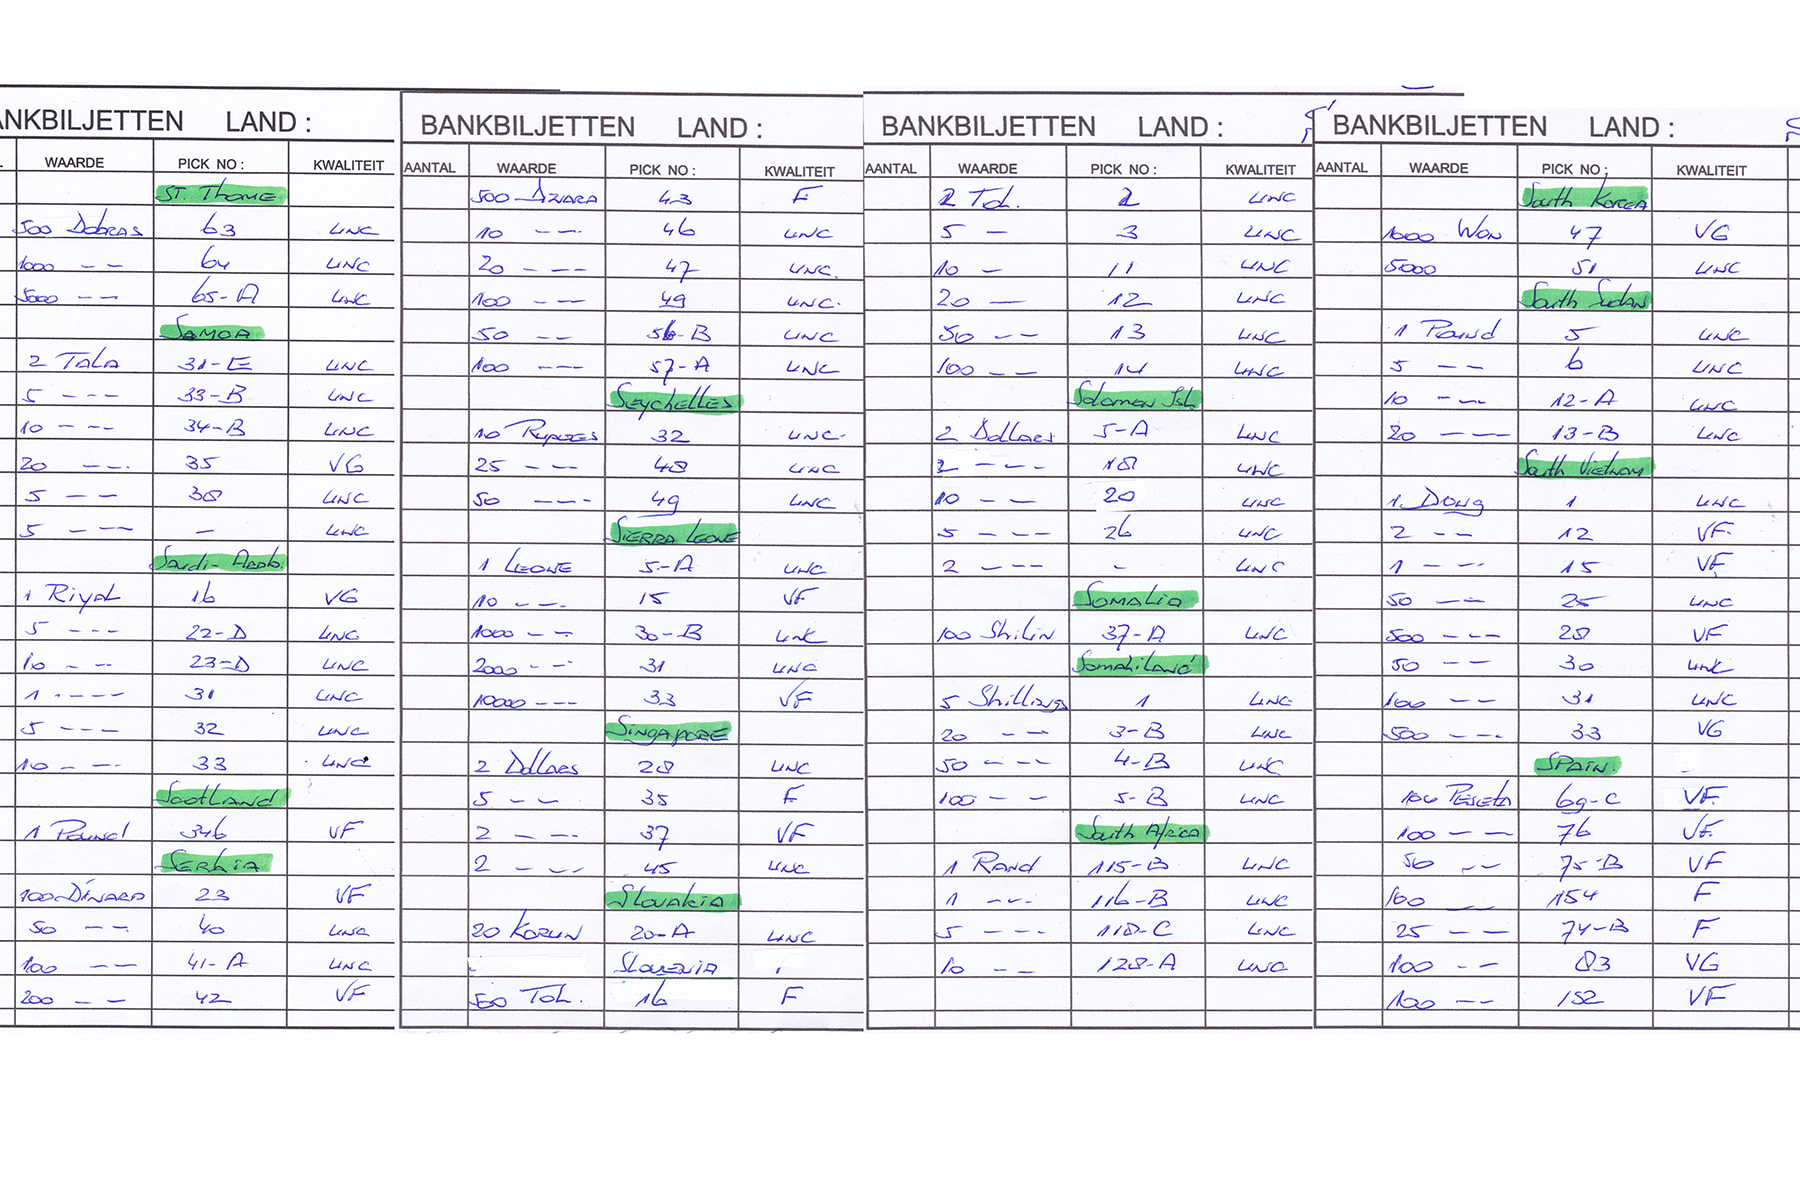 ANKBILJETTEN LAND :
WAARDE PICK NO : KWALITEIT
ST. Thome
500 Dobras 63 UNC
1000 -- 64 UNC
5000 -- 65-A UNC
SAMOA
2 TALA 31-E UNC
5 --- 33-B UNC
10 --- 34-B UNC
20 --- 35 VG
5 -- 38 UNC
5 --- - UNC
Saudi-Arab.
1 Riyal 16 VG
5 --- 22-D UNC
10 -- 23-D UNC
1 ---- 31 UNC
5 --- 32 UNC
10 --- 33 UNC
Scotland
1 Pound 346 VF
Serbia
100 Dinara 23 VF
50 -- 40 UNC
100 -- 41-A UNC
200 -- 42 VF
BANKBILJETTEN LAND :
AANTAL WAARDE PICK NO : KWALITEIT
500 Dinara 43 F
10 -- 46 UNC
20 --- 47 UNC.
100 --- 49 UNC.
50 -- 56-B UNC
100 --- 57-A UNC
Seychelles
10 Rupees 32 UNC.
25 --- 48 UNC
50 --- 49 UNC
SIERRA LEONE
1 LEONE 5-A UNC
10 --- 15 VF
1000 -- 30-B UNC
2000 --- 31 UNC
10000 --- 33 VF
SINGAPORE
2 Dollars 28 UNC
5 -- 35 F
2 --- 37 VF
2 --- 45 UNC
SLOVAKIA
20 KORUN 20-A UNC
SLOVENIA
500 Tol. 16 F
BANKBILJETTEN LAND :
AANTAL WAARDE PICK NO : KWALITEIT
2 Tol. 2 UNC
5 - 3 UNC
10 - 11 UNC
20 -- 12 UNC
50 -- 13 UNC
100 -- 14 UNC
Solomon Isl
2 Dollars 5-A UNC
2 --- 18 UNC
10 -- 20 UNC
5 --- 26 UNC
2 --- - UNC
SOMALIA
100 Shilin 37-A UNC
Somaliland
5 Shillings 1 UNC
20 -- 3-B UNC
50 --- 4-B UNC
100 -- 5-B UNC
South Africa
1 Rand 115-B UNC
1 --- 116-B UNC
5 --- 118-C UNC
10 -- 128-A UNC
BANKBILJETTEN LAND :
AANTAL WAARDE PICK NO : KWALITEIT
South Korea
1000 WON 47 VG
5000 51 UNC
South Sudan
1 Pound 5 UNC
5 -- 6 UNC
10 --- 12-A UNC
20 --- 13-B UNC
South Vietnam
1 Dong 1 UNC
2 -- 12 VF.
1 --- 15 VF
50 -- 25 UNC
500 --- 28 VF
50 -- 30 UNC
100 -- 31 UNC
500 --- 33 VG
SPAIN.
100 Peseta 69-C VF.
100 -- 76 VF.
50 -- 75-B VF
100 -- 154 F
25 -- 74-B F
100 -- 83 VG
100 -- 152 VF